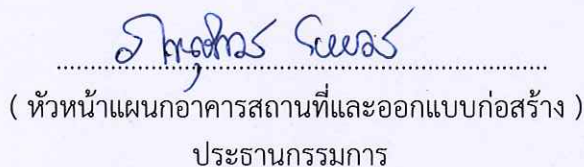 ( หัวหน้าแผนกอาคารสถานที่และออกแบบก่อสร้าง )
ประธานกรรมการ